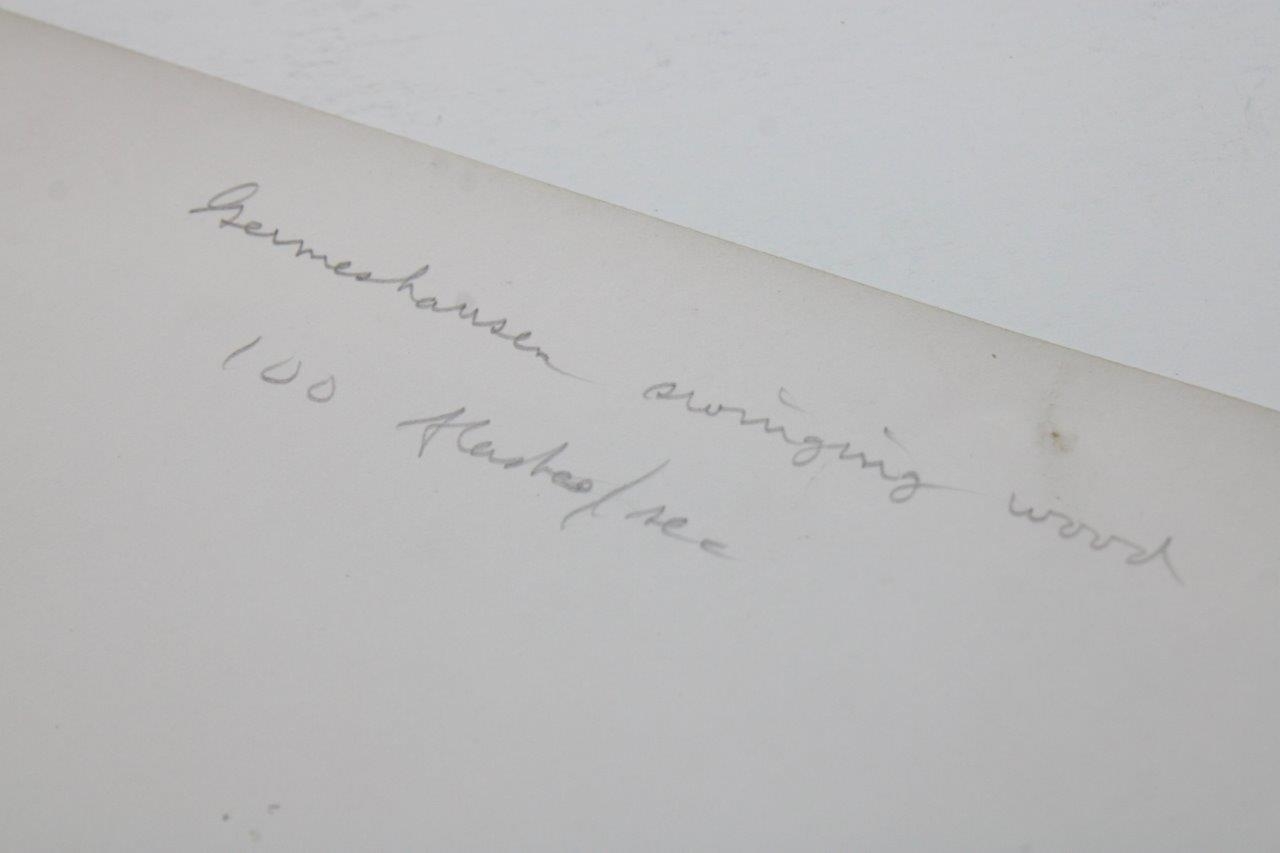 Germeshausen swinging wood
100 flashes/sec